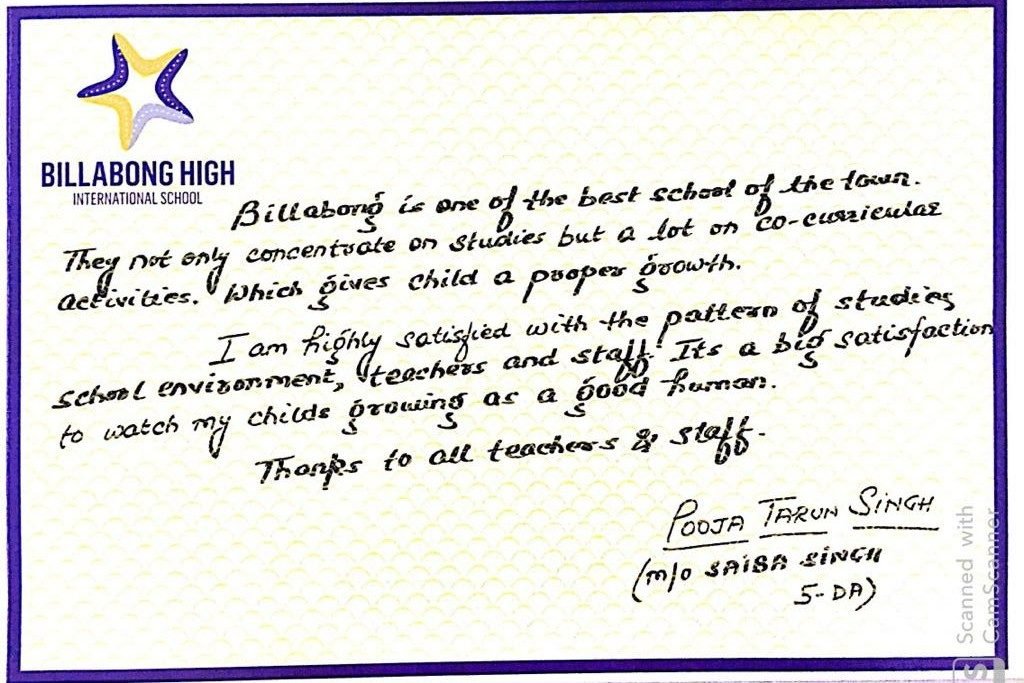 BILLABONG HIGH
INTERNATIONAL SCHOOL
Billabong is one of the best school of the town.
They not only concentrate on studies but a lot on co-curricular
activities. Which gives child a proper growth.
I am highly satisfied with the pattern of studies
school environment, teachers and staff. Its a big satisfaction
to watch my childs growing as a good human.
Thanks to all teachers & staff.
POOJA TARUN SINGH
(m/o SAIBA SINGH
5-DA)
Scanned with
CamScanner
CS